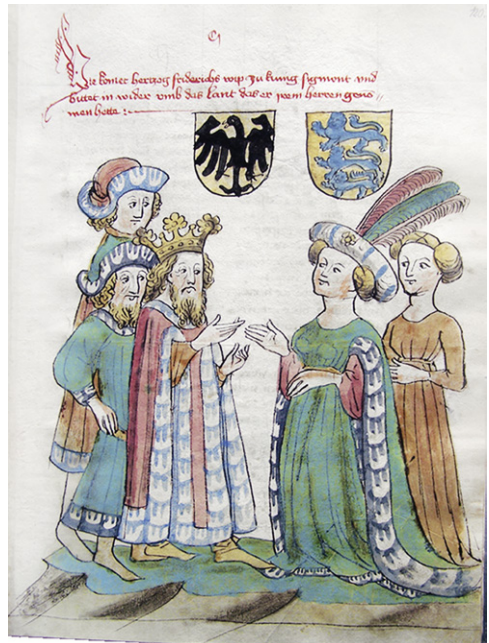 Hie komet hertzog friderichs wip zu kung sigmont vnd
bittet in wider vmb das lant das er yrem herren genom//
men hette :